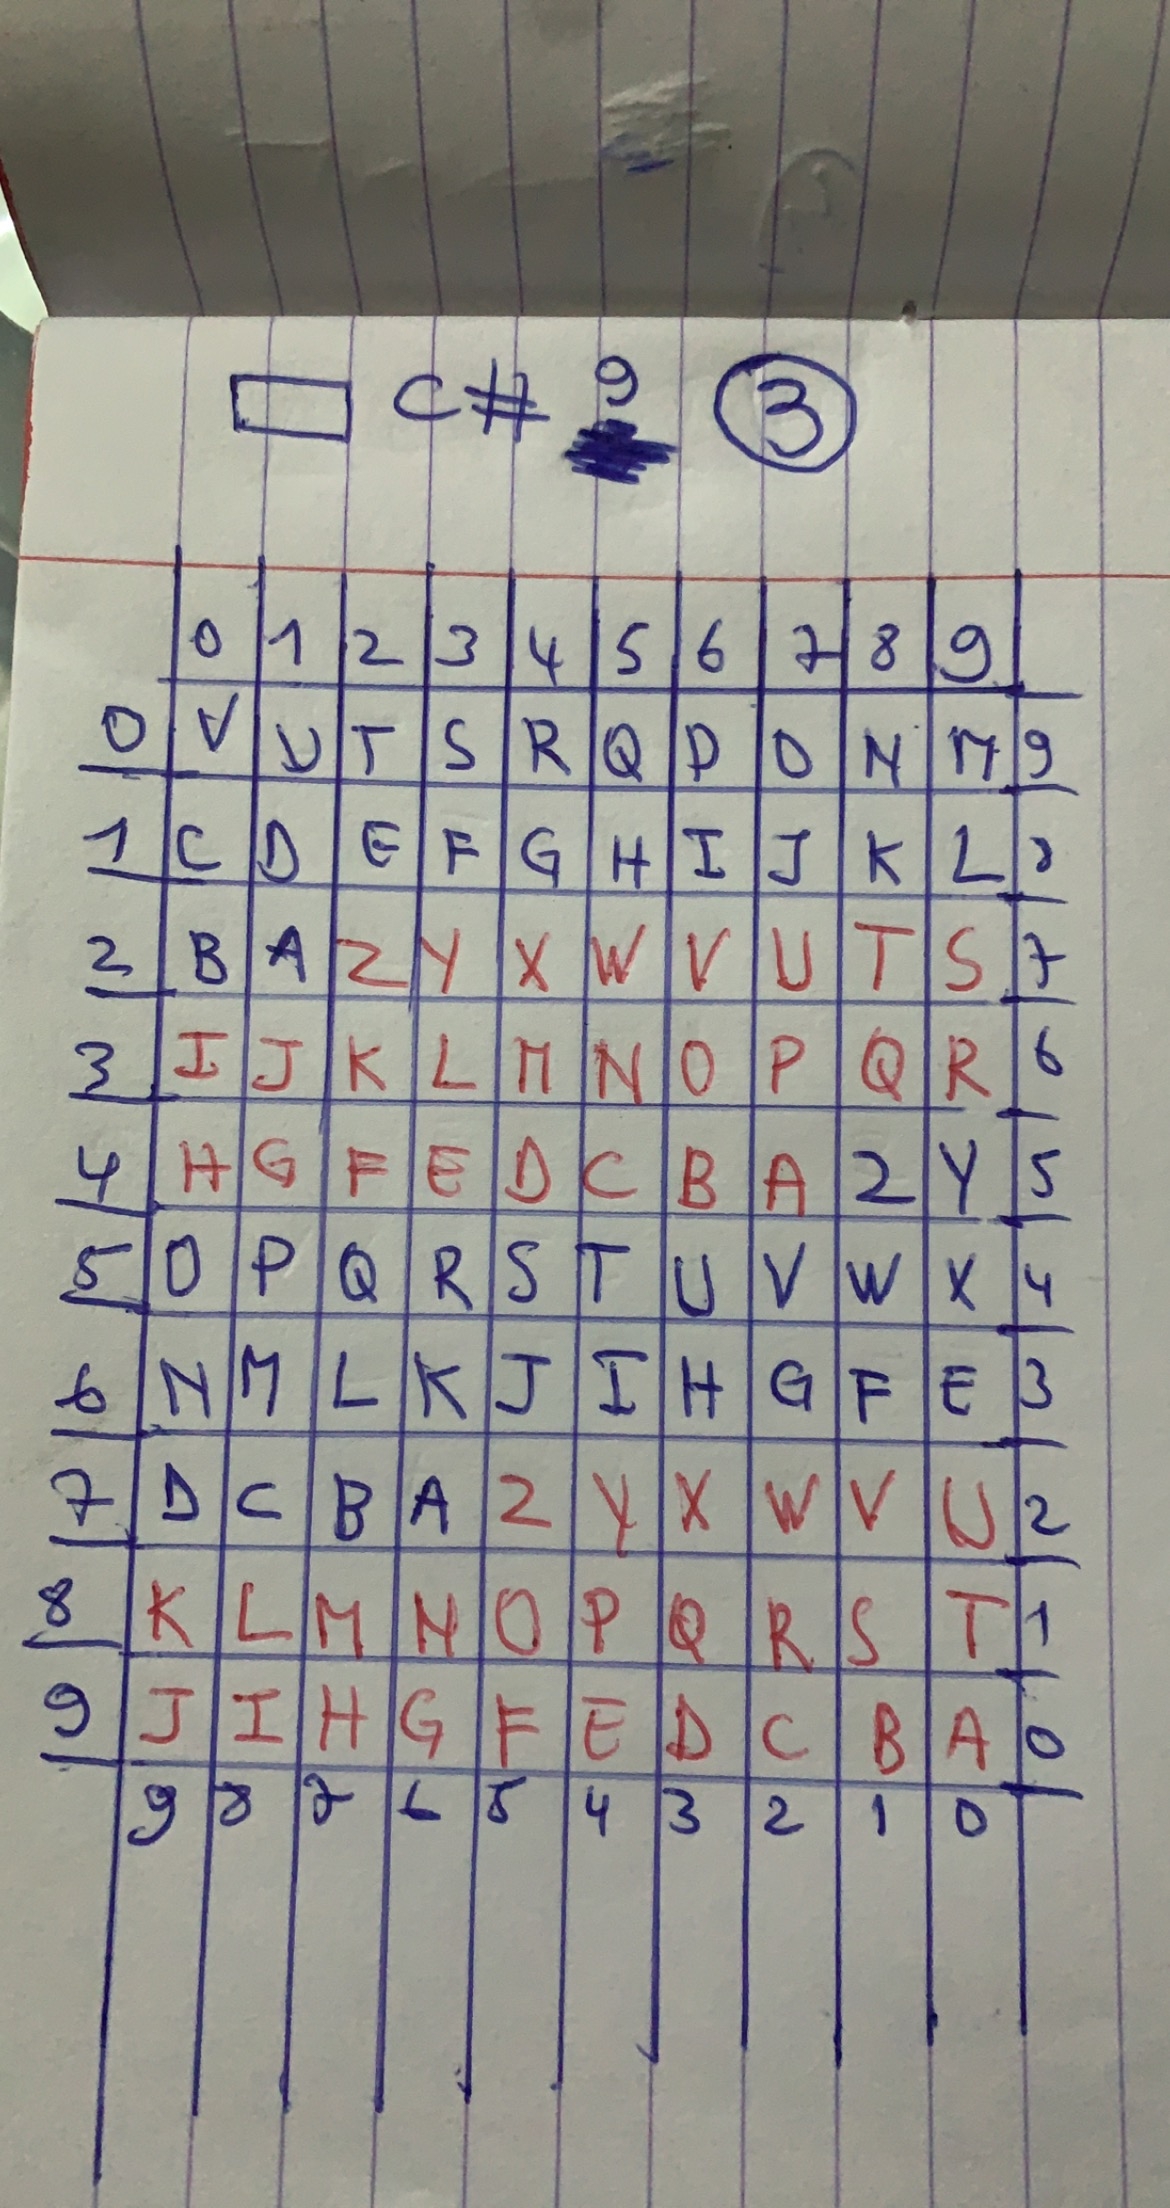 C# 9 3
0 1 2 3 4 5 6 7 8 9
0 V U T S R Q P O N M 9
1 C D E F G H I J K L 8
2 B A Z Y X W V U T S 7
3 I J K L M N O P Q R 6
4 H G F E D C B A Z Y 5
5 O P Q R S T U V W X 4
6 N M L K J I H G F E 3
7 D C B A Z Y X W V U 2
8 K L M N O P Q R S T 1
9 J I H G F E D C B A 0
9 8 7 6 5 4 3 2 1 0